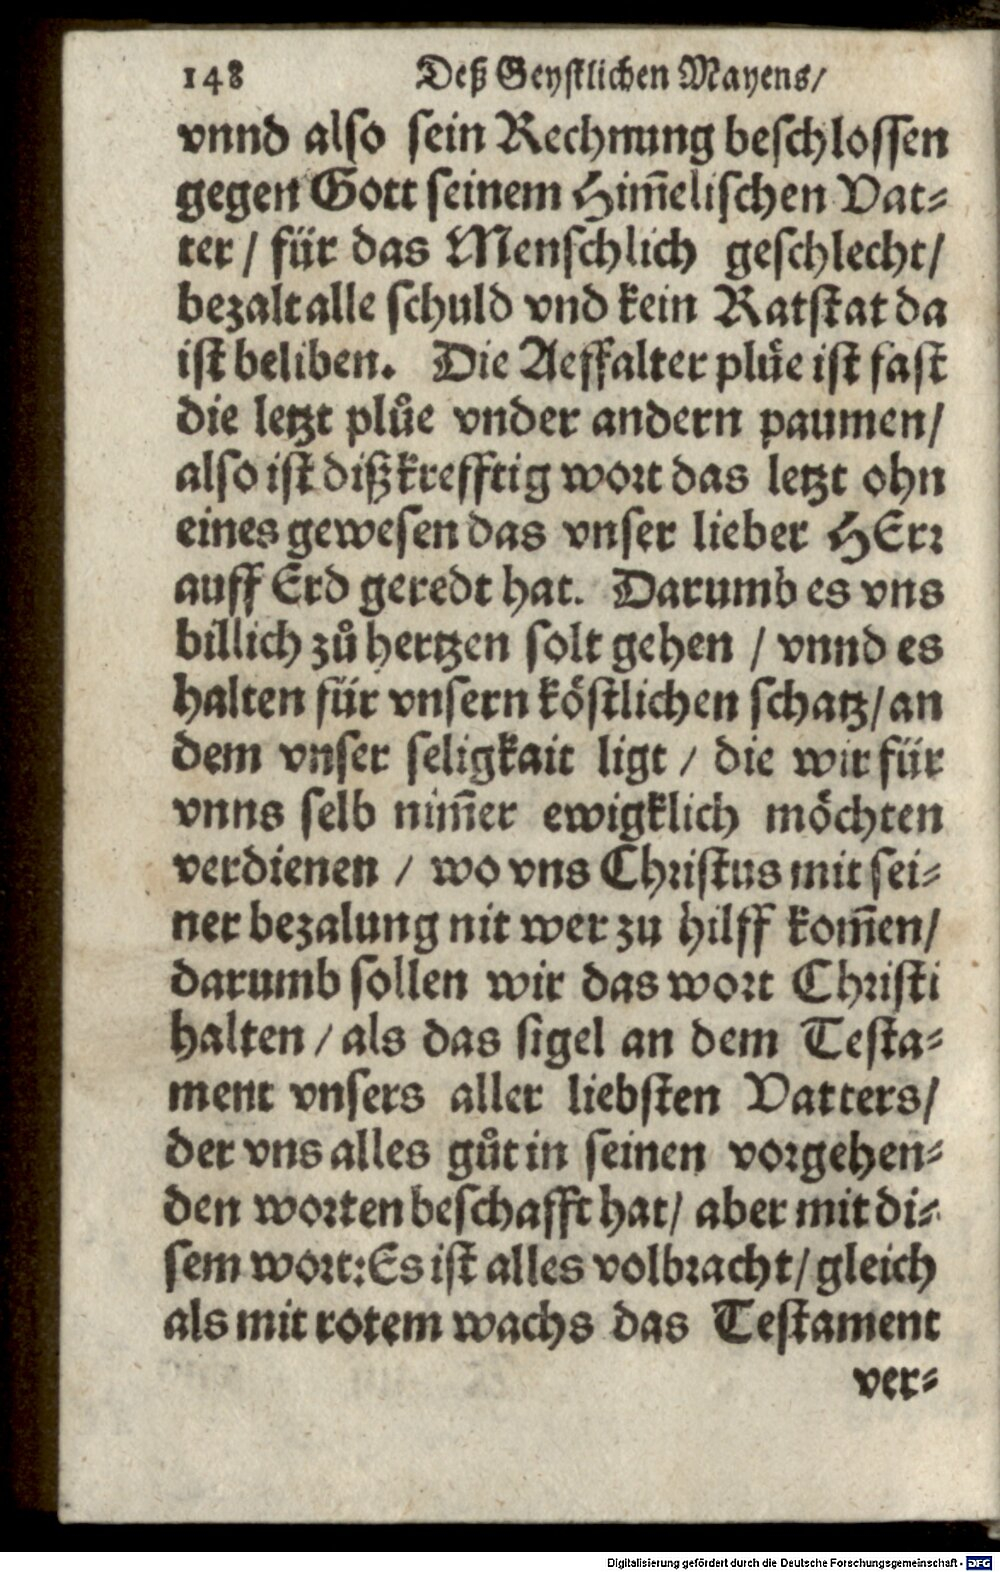 148 Deß Geystlichen Mayens/
vnnd also sein Rechnung beschlossen
gegen Gott seinem Him̃elischen Vat⸗
ter / für das Menschlich geschlecht/
bezalt alle schuld vnd kein Ratstat da
ist beliben. Die Aeffalter plüe ist fast
die letzt plůe vnder andern paumen/
also ist diß krefftig wort das letzt ohn
eines gewesen das vnser lieber HErꝛ
auff Erd geredt hat. Darumb es vns
billich zů hertzen solt gehen / vnnd es
halten für vnsern köstlichen schatz/ an
dem vnser seligkait ligt / die wir für
vnns selb nim̃er ewigklich möchten
verdienen / wo vns Christus mit sei⸗
ner bezalung nit wer zu hilff kom̃en/
darumb sollen wir das wort Christi
halten / als das sigel an dem Testa⸗
ment vnsers aller liebsten Vatters/
der vns alles gůt in seinen vorgehen⸗
den worten beschafft hat/ aber mit di⸗
sem wort: Es ist alles volbracht/ gleich
als mit rotem wachs das Testament
ver⸗
Digitalisierung gefördert durch die Deutsche Forschungsgemeinschaft - DFG